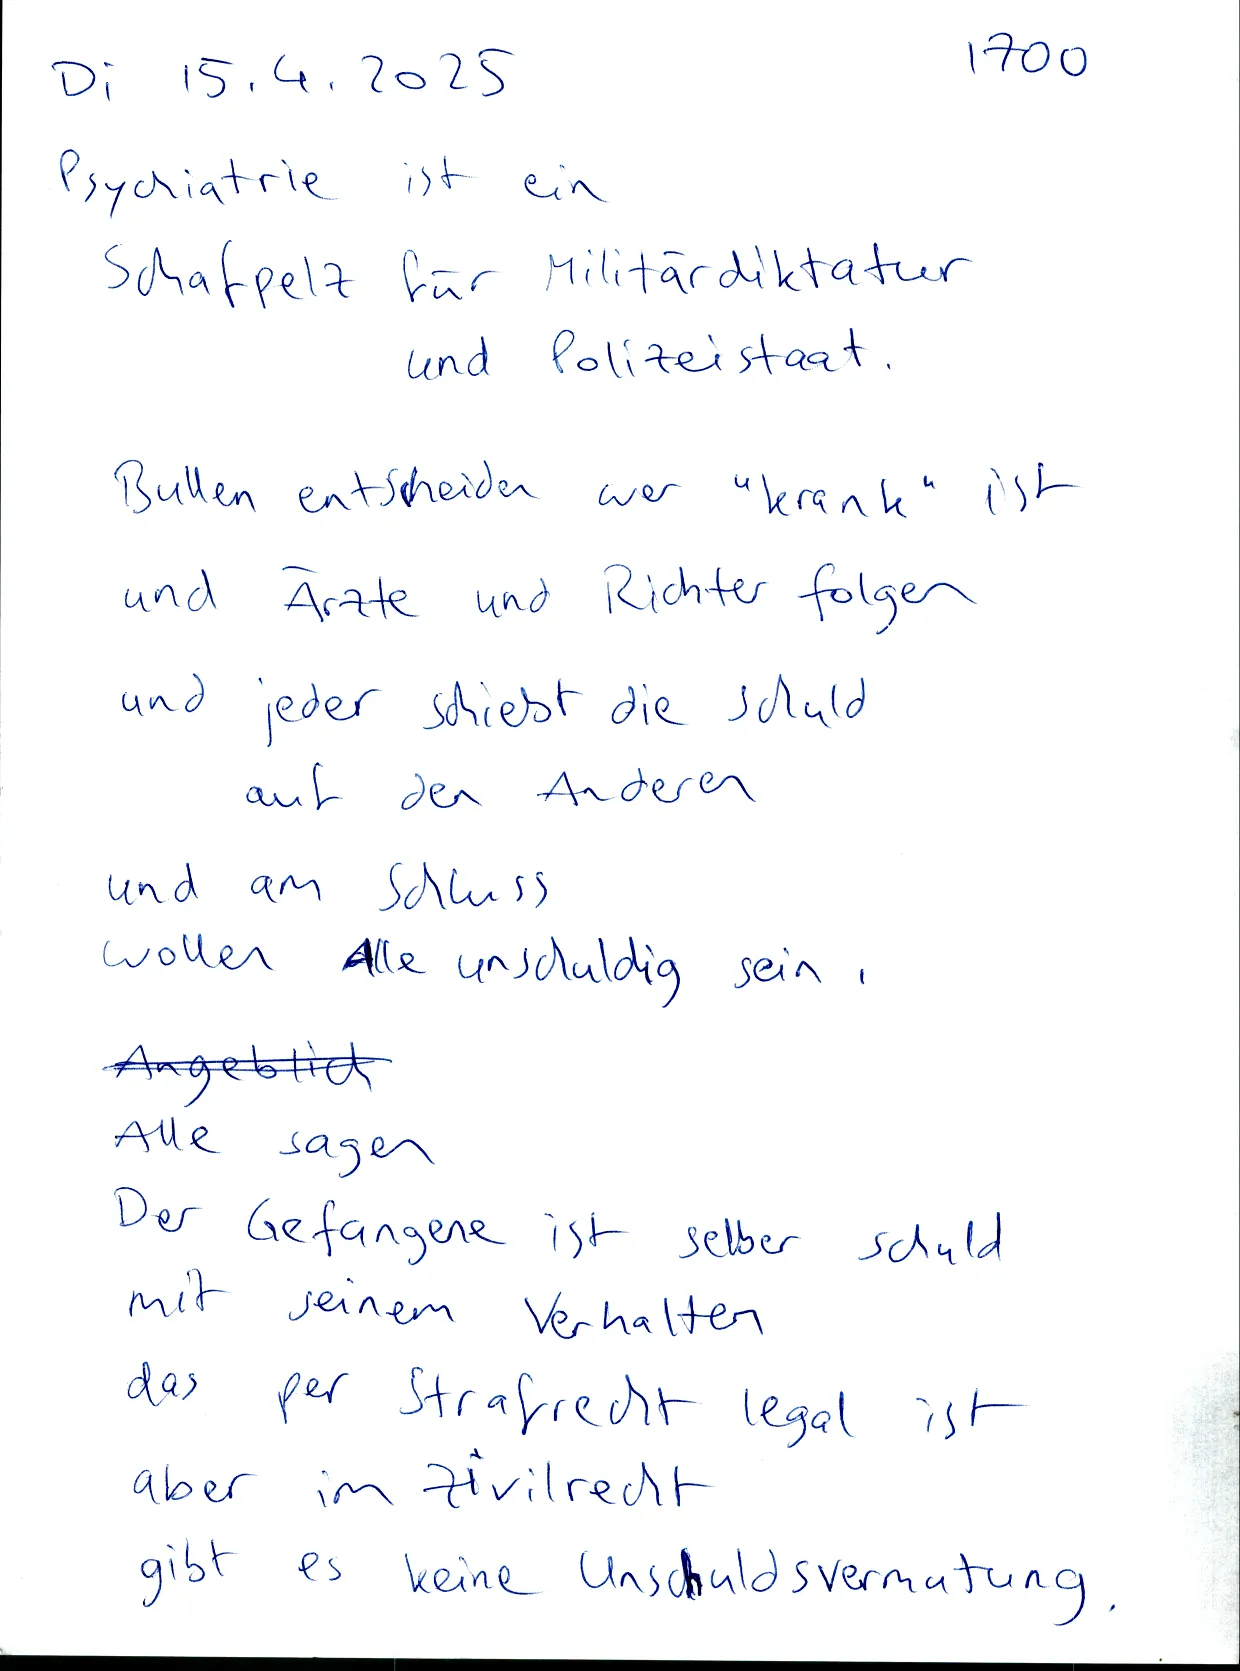 Di 15.4.2025 1700
Psychiatrie ist ein
Schafpelz für Militärdiktatur
und Polizeistaat.
Bullen entscheiden wer "krank" ist
und Ärzte und Richter folgen
und jeder schiebt die schuld
auf den Anderen
und am Schluss
wollen Alle unschuldig sein.
Angeblich
Alle sagen
Der Gefangene ist selber schuld
mit seinem Verhalten
das per Strafrecht legal ist
aber im Zivilrecht
gibt es keine Unschuldsvermutung.